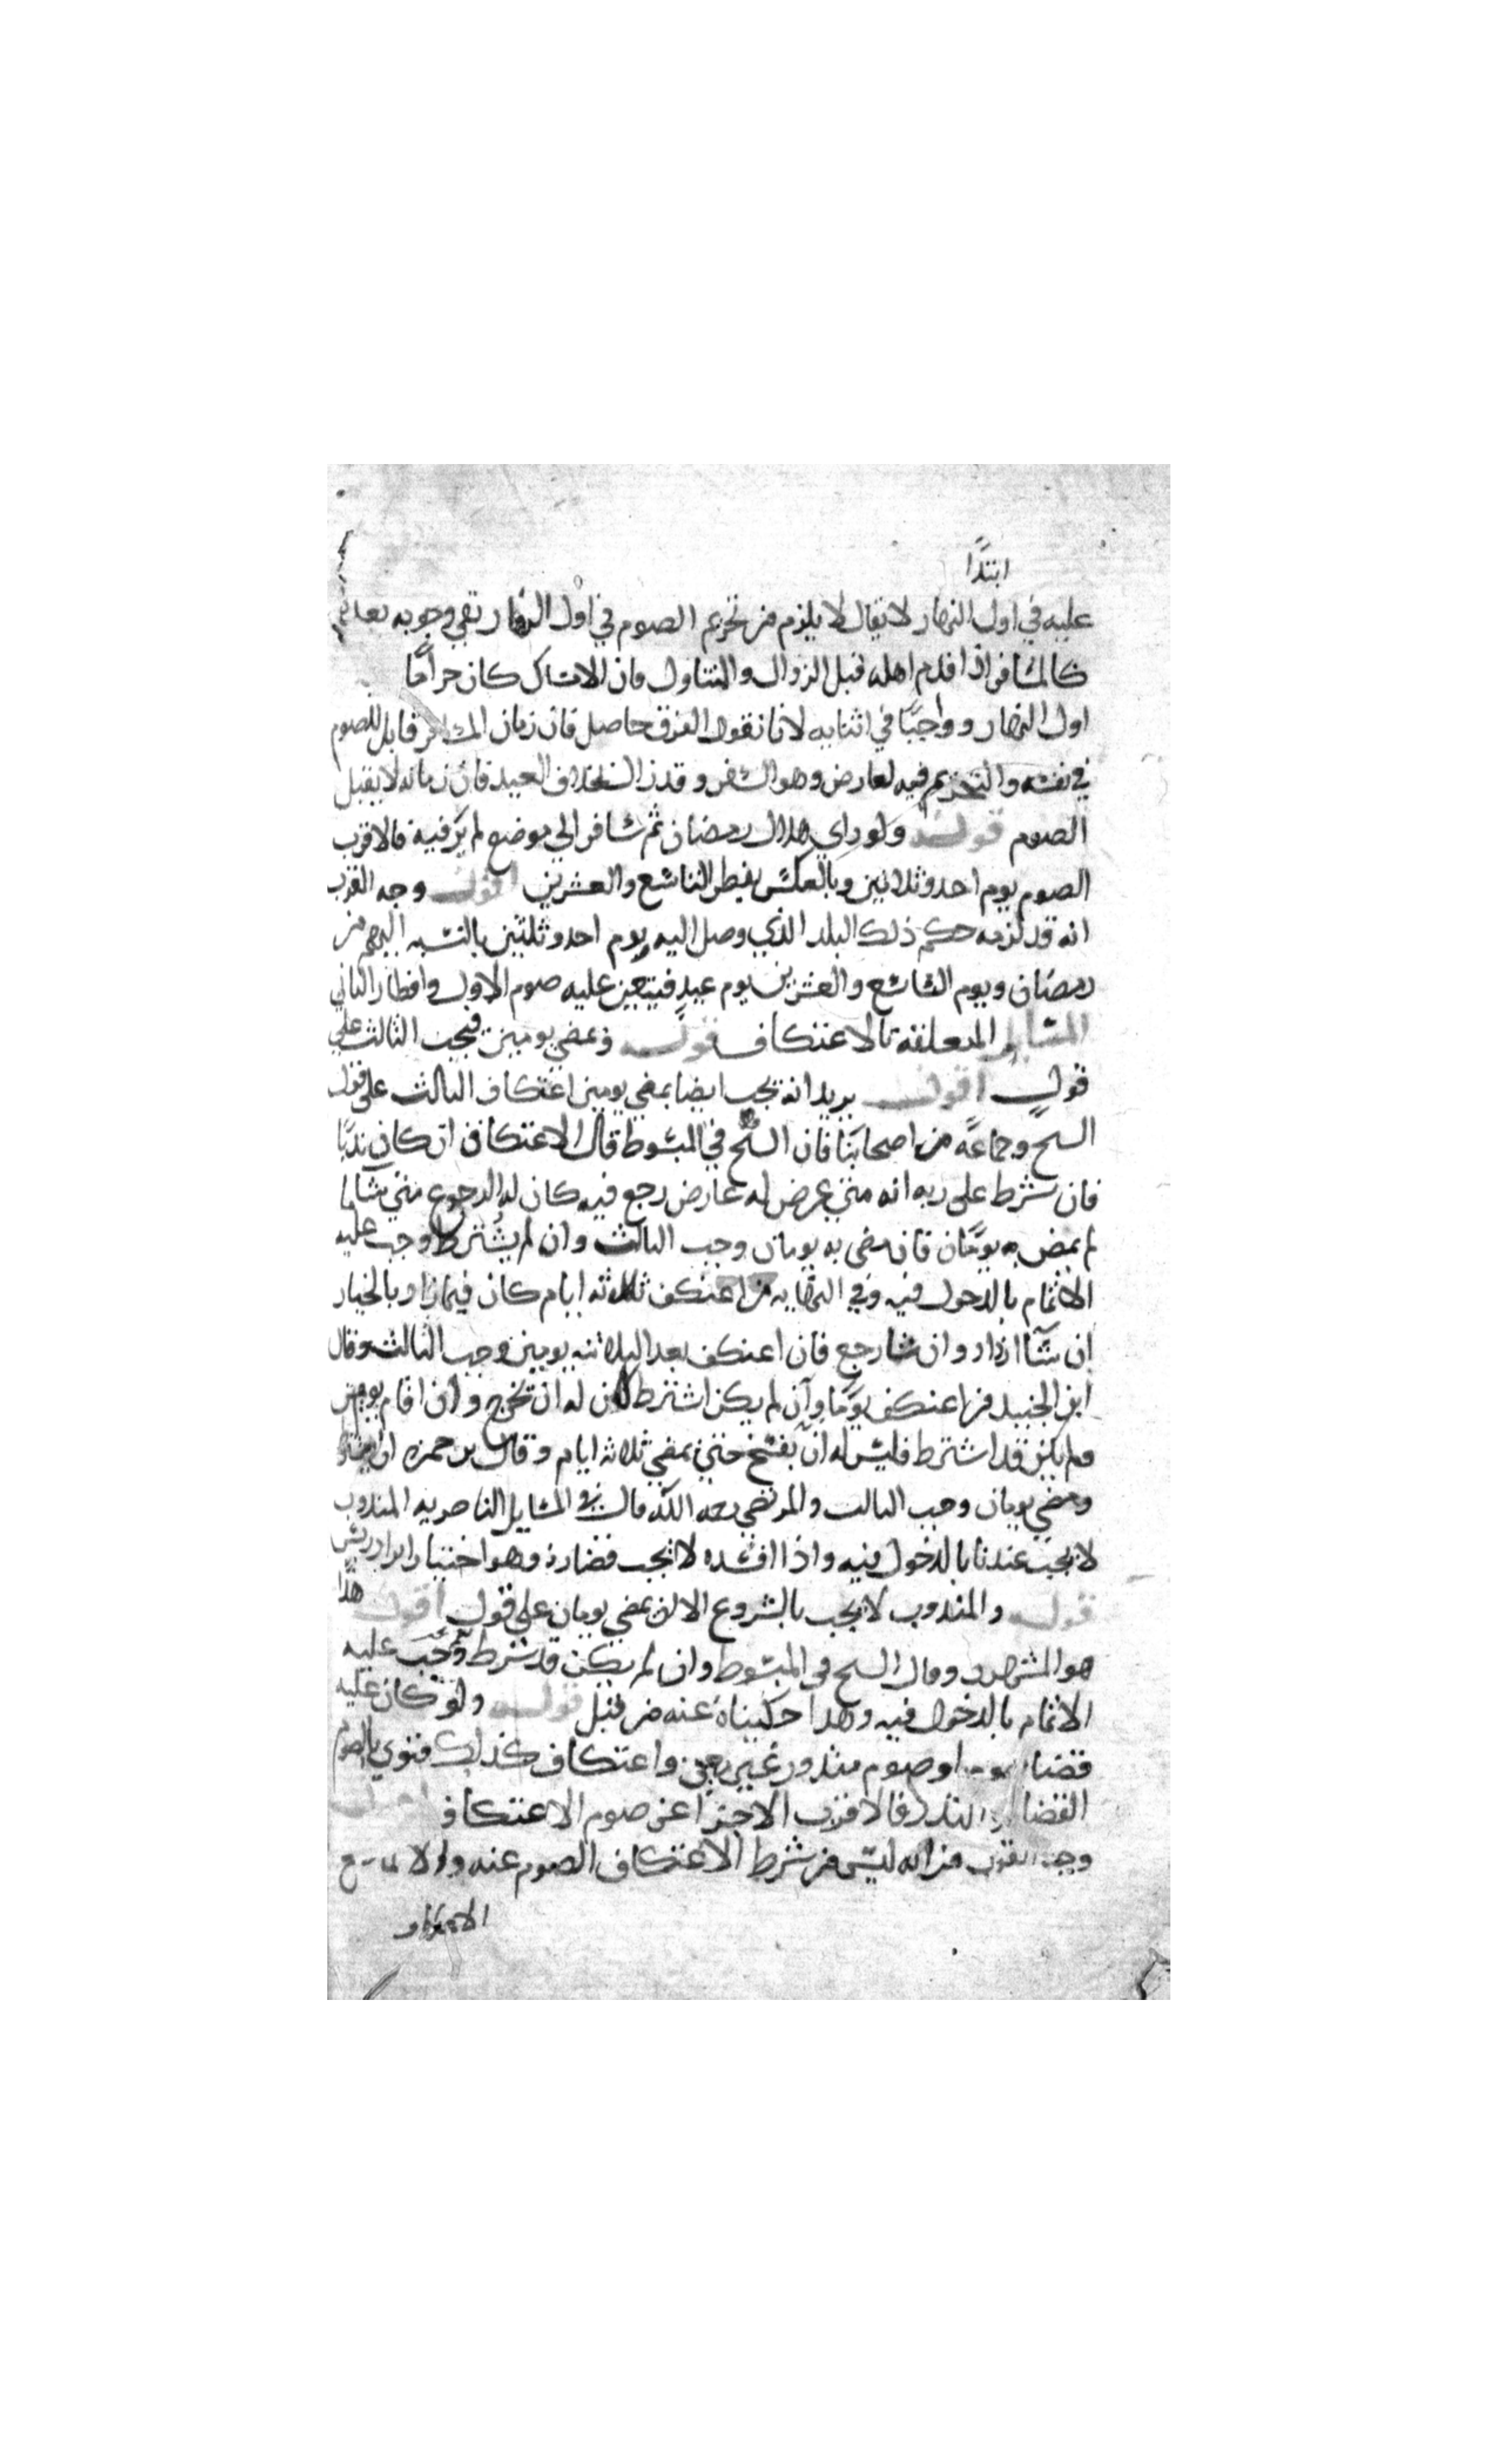 ابتدًا
عليه في اول النهار لا يقال لا يلزم من تحريم الصوم في اول النهار نفي وجوبه
كالمسافر اذا قدم اهله قبل الزوال والتناول فان الامساك كان حرامًا
اول النهار وواجبًا في اثنايه لانا نقول الفرق حاصل فان زمان المسافر قابل للصوم
في نفسه والتحريم فيه لعارض وهو السفر وقد زال بخلاف العيد فان زمانه لا يقبل
الصوم قوله ولو راي هلال رمضان ثم سافر الي موضع لم ير فيه فالاقرب
الصوم يوم احد وثلاثين وبالعكس يفطر التاسع والعشرين اقول وجه القرب
انه قد لزمه حكم ذلك البلد الذي وصل اليه ويوم احد وثلثين بالنسبه اليهم من
رمضان ويوم التاسع والعشرين يوم عيد فيتعين عليه صوم الاول وافطار الثاني
المسايل المتعلقه بالاعتكاف قوله ومضي يومين فيجب الثالث علي
قول اقول يريد انه يجب ايضا بمضي يومين اعتكاف الثالث على قول
الشيخ وجماعة من اصحابنا فان الشيخ في المبسوط قال الاعتكاف ان كان ندبًا
فان شرط على ربه انه متي عرض له عارض رجع فيه كان له الرجوع متي شا ما
لم يمض به يومان فان مضى به يومان وجب الثالث وان لم يشترط وجب عليه
الاتمام بالدخول فيه وفي النهايه من اعتكف ثلاثه ايام كان فيما زاد بالخيار
ان شآ ازداد وان شا رجع فان اعتكف بعد الثلاثه يومين وجب الثالث وقال
ابن الجنيد فمن اعتكف يومًا وان لم يكن اشترط كان له ان يخرج وان اقام يومين
ولم يكن قد اشترط فليس له ان يفسخ حتي يمضي ثلاثه ايام وقال بن حمزه ان
ومضي يومان وجب الثالث والمرتضى رحمه الله قال في المسايل الناصريه المندوب
لا يجب عندنا بالدخول فيه واذا افسده لا يجب قضاوه وهو اختيار ابن ادريس
قوله والمندوب لا يجب بالشروع الا ان يمضي يومان علي قول اقول هذا
هو المشهور وقال الشيخ في المبسوط وان لم يكن قد شرط وجب عليه
الاتمام بالدخول فيه وهذا حكيناه عنه من قبل قوله ولو كان عليه
قضا او صوم منذور غير معين واعتكاف كذلك فنوي بالصوم
القضا او النذر فالاقرب الاجتزا عن صوم الاعتكاف
وجه القرب من انه ليس من شرط الاعتكاف الصوم عنه